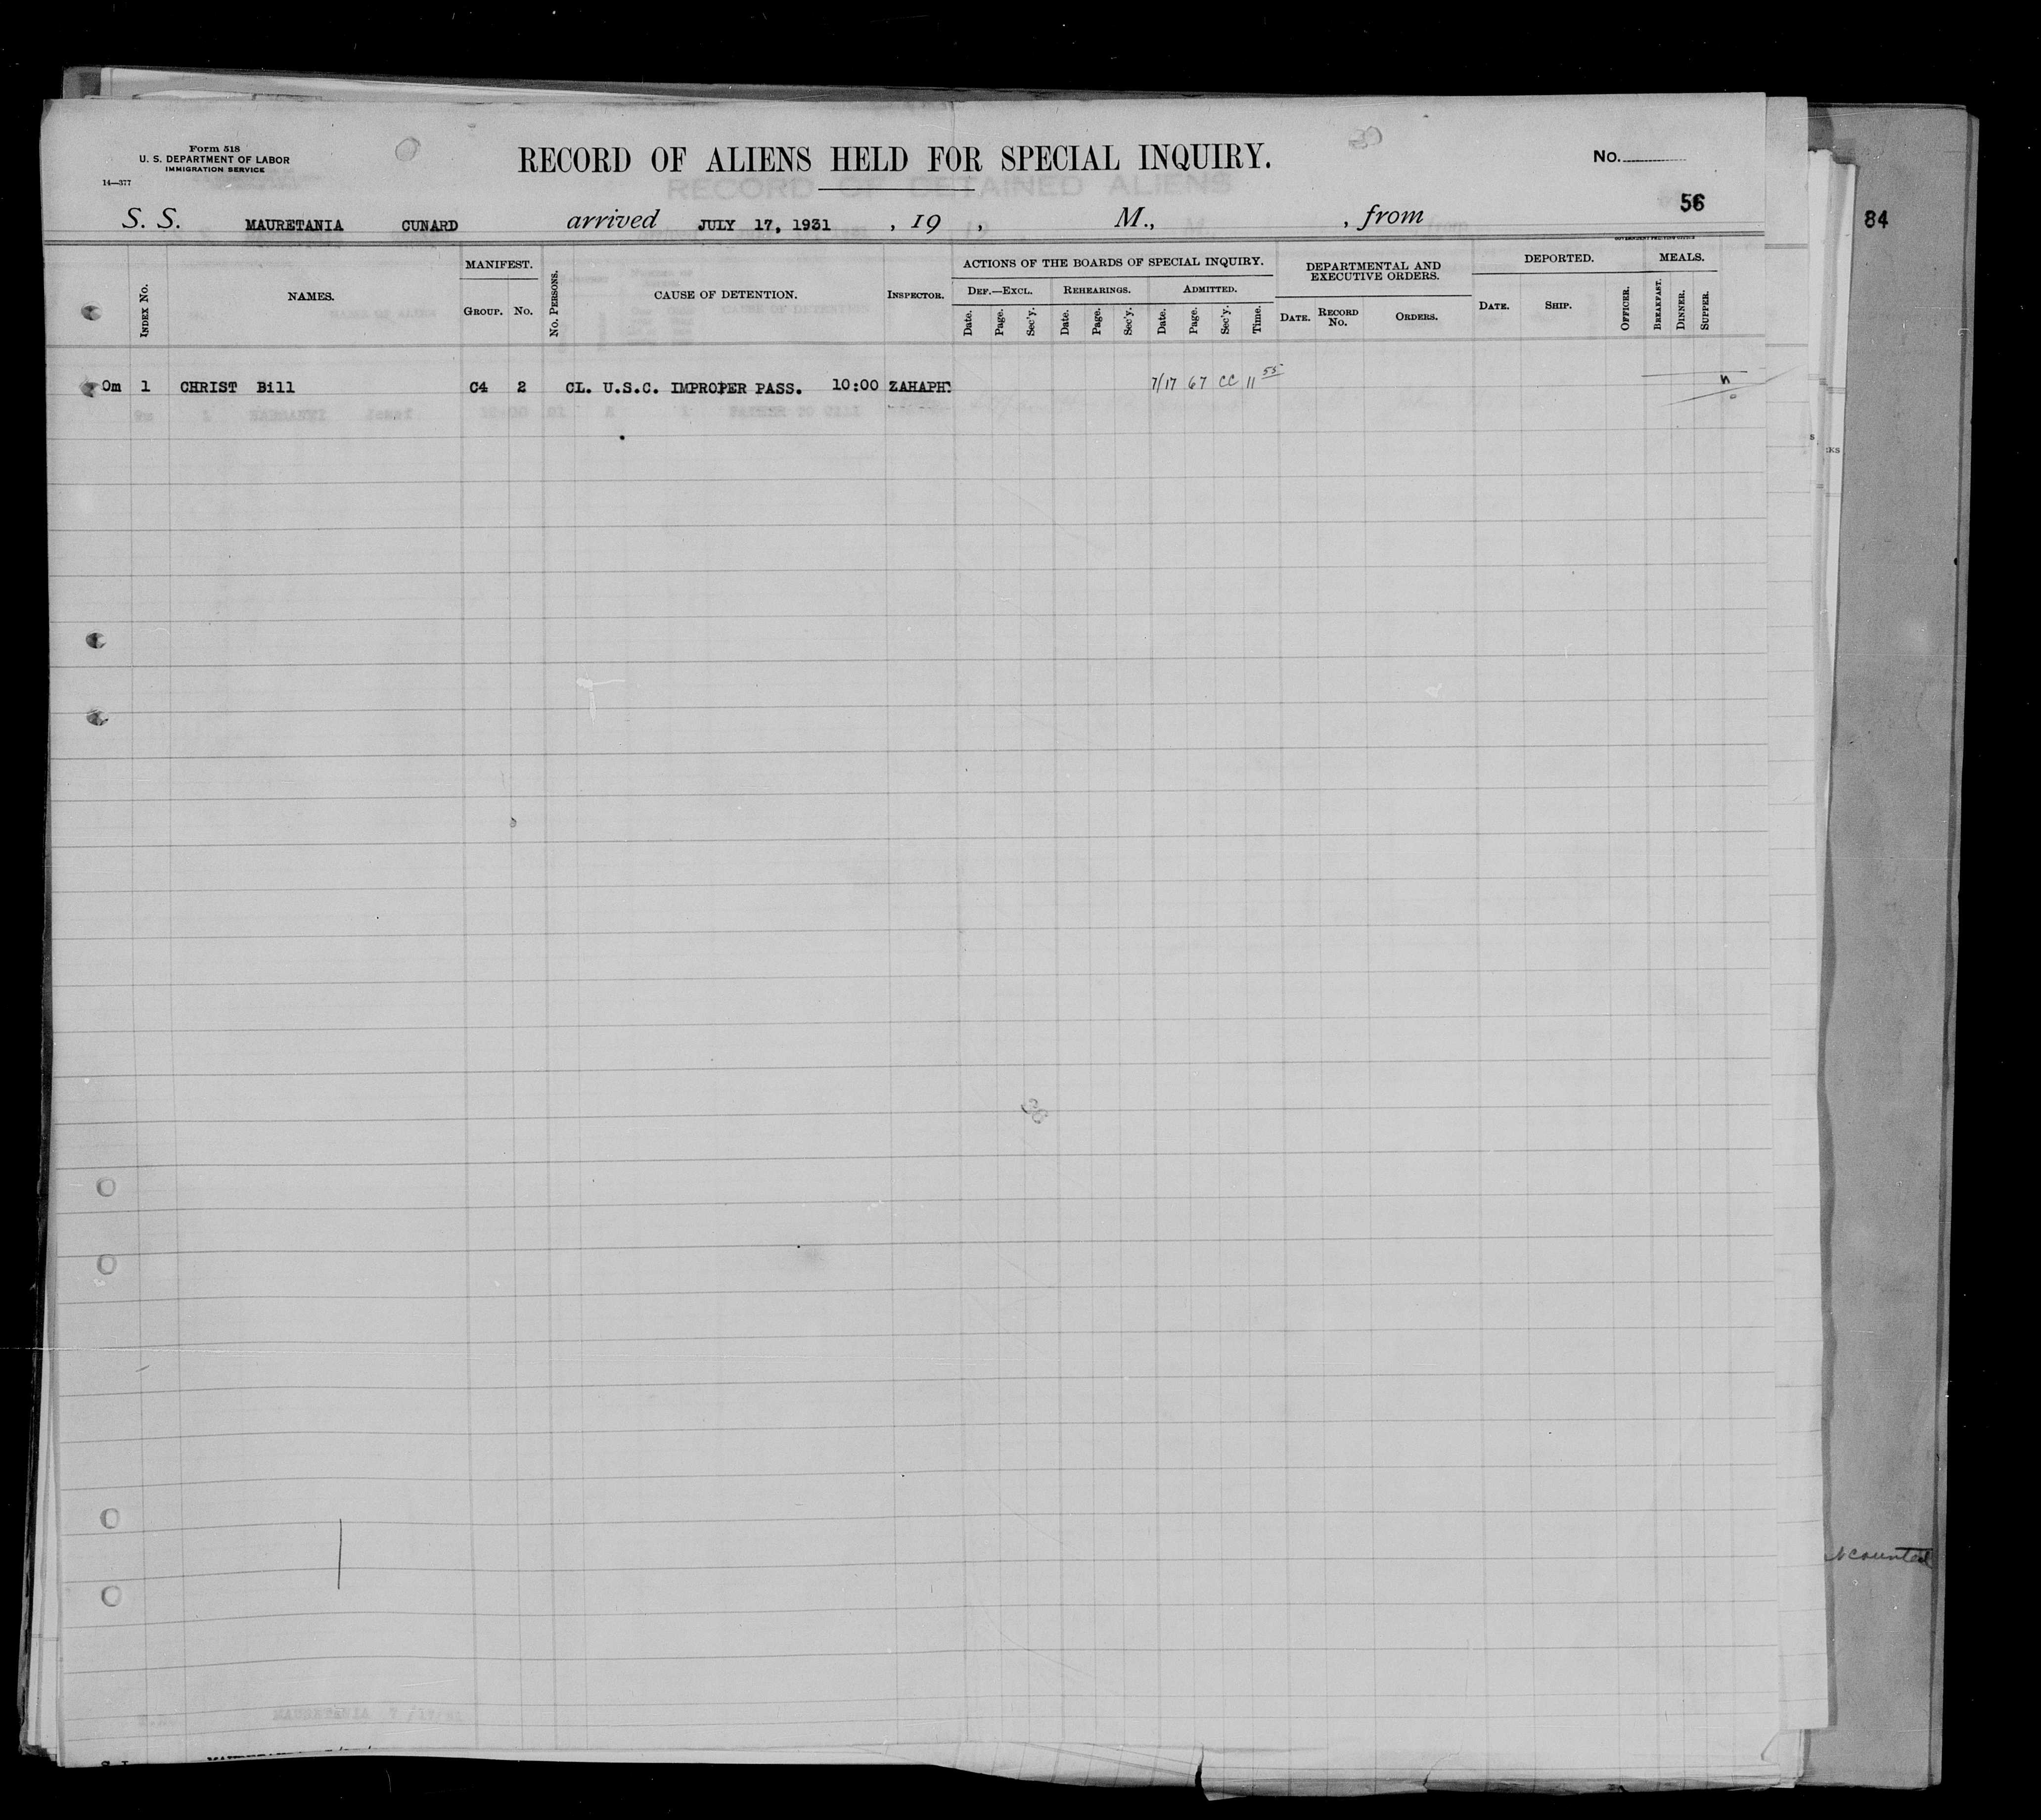 Form 518
U. S. DEPARTMENT OF LABOR
IMMIGRATION SERVICE
14—377
RECORD OF ALIENS HELD FOR SPECIAL INQUIRY.
No.
56
84
S. S. MAURETANIA CUNARD arrived JULY 17, 1931 , 19 , M., , from
GOVERNMENT PRINTING OFFICE
INDEX No.
NAMES.
MANIFEST.
GROUP. No.
No. PERSONS.
CAUSE OF DETENTION.
INSPECTOR.
ACTIONS OF THE BOARDS OF SPECIAL INQUIRY.
DEF.—EXCL. REHEARINGS. ADMITTED.
Date. Page. Sec'y. Date. Page. Sec'y. Date. Page. Sec'y. Time.
DEPARTMENTAL AND
EXECUTIVE ORDERS.
DATE. RECORD No. ORDERS.
DEPORTED.
DATE. SHIP. OFFICER.
MEALS.
BREAKFAST. DINNER. SUPPER.
0m 1 CHRIST Bill C4 2 CL. U.S.C. IMPROPER PASS. 10:00 ZAHAPH 7/17 67 CC 11 55 n
RECORD OF DETAINED ALIENS
CAUSE OF DETENTION
FATHER TO CALL
MAURETANIA 7/17/31